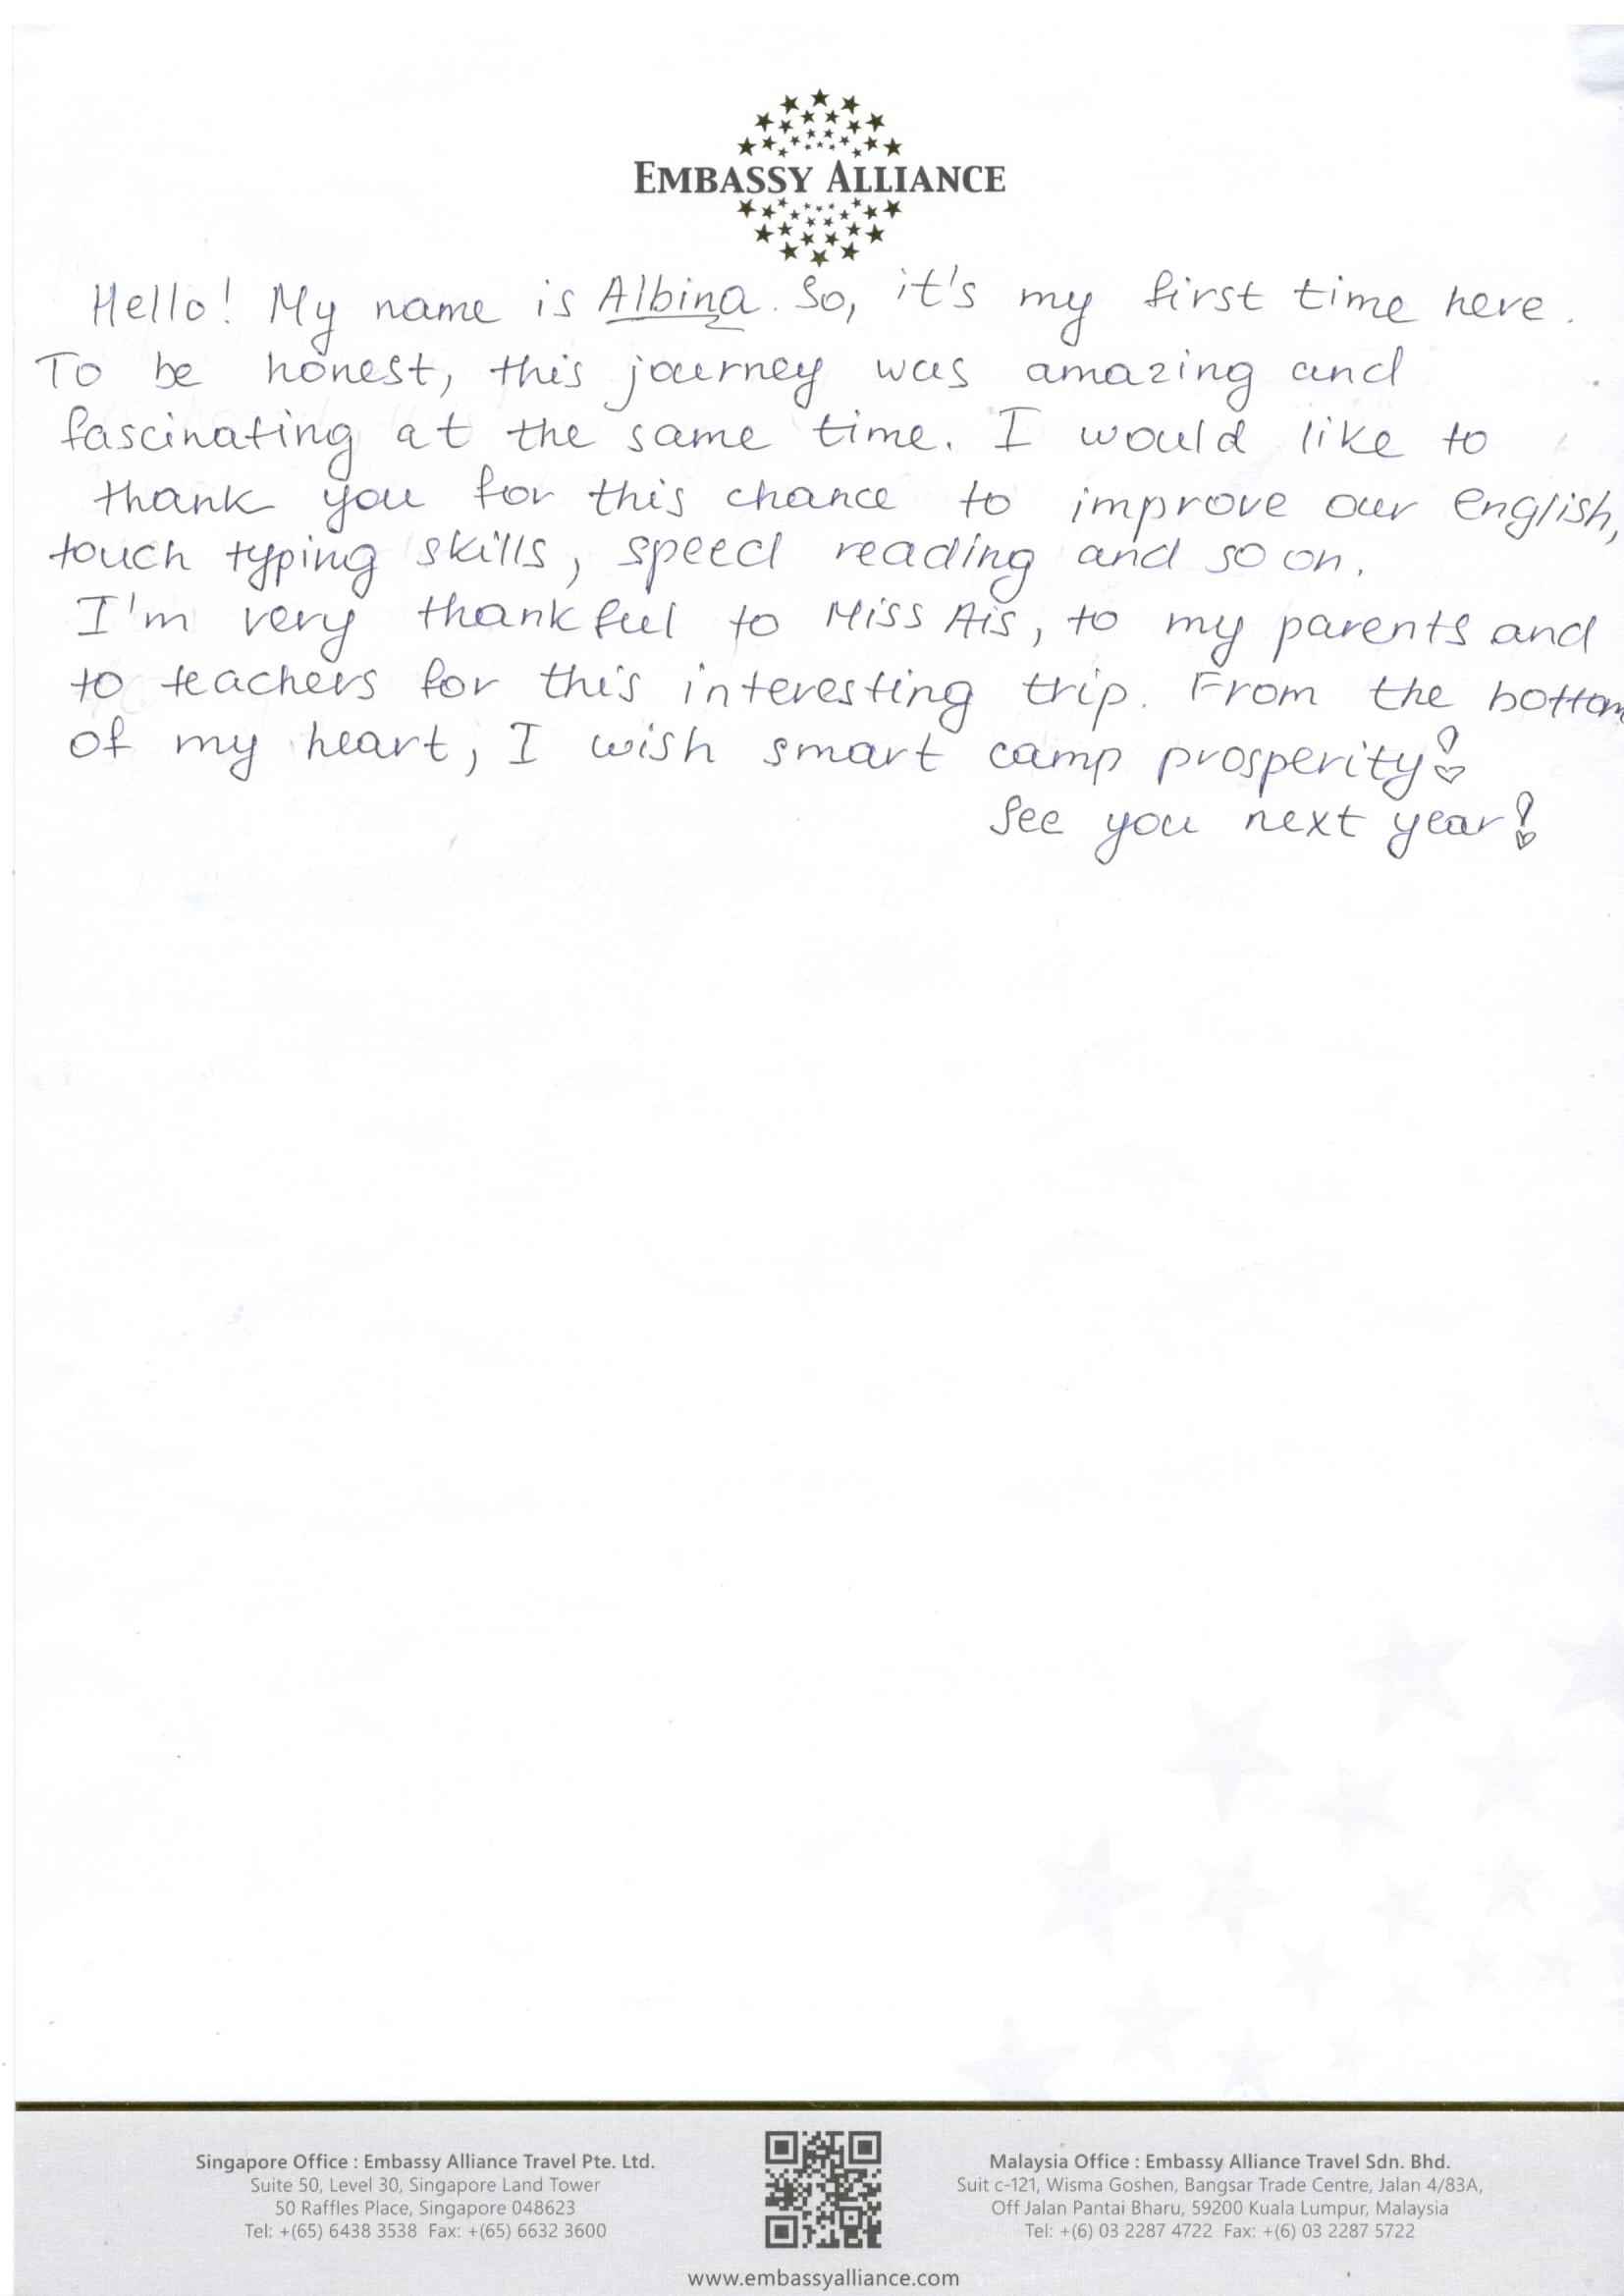 EMBASSY ALLIANCE
Hello! My name is Albina. So, it's my first time here.
To be honest, this journey was amazing and
fascinating at the same time. I would like to
thank you for this chance to improve our english,
touch typing skills, speed reading and so on.
I'm very thankful to Miss Ais, to my parents and
to teachers for this interesting trip. From the bottom
of my heart, I wish smart camp prosperity!
See you next year!
Singapore Office : Embassy Alliance Travel Pte. Ltd.
Suite 50, Level 30, Singapore Land Tower
50 Raffles Place, Singapore 048623
Tel: +(65) 6438 3538 Fax: +(65) 6632 3600
Malaysia Office : Embassy Alliance Travel Sdn. Bhd.
Suit c-121, Wisma Goshen, Bangsar Trade Centre, Jalan 4/83A,
Off Jalan Pantai Bharu, 59200 Kuala Lumpur, Malaysia
Tel: +(6) 03 2287 4722 Fax: +(6) 03 2287 5722
www.embassyalliance.com